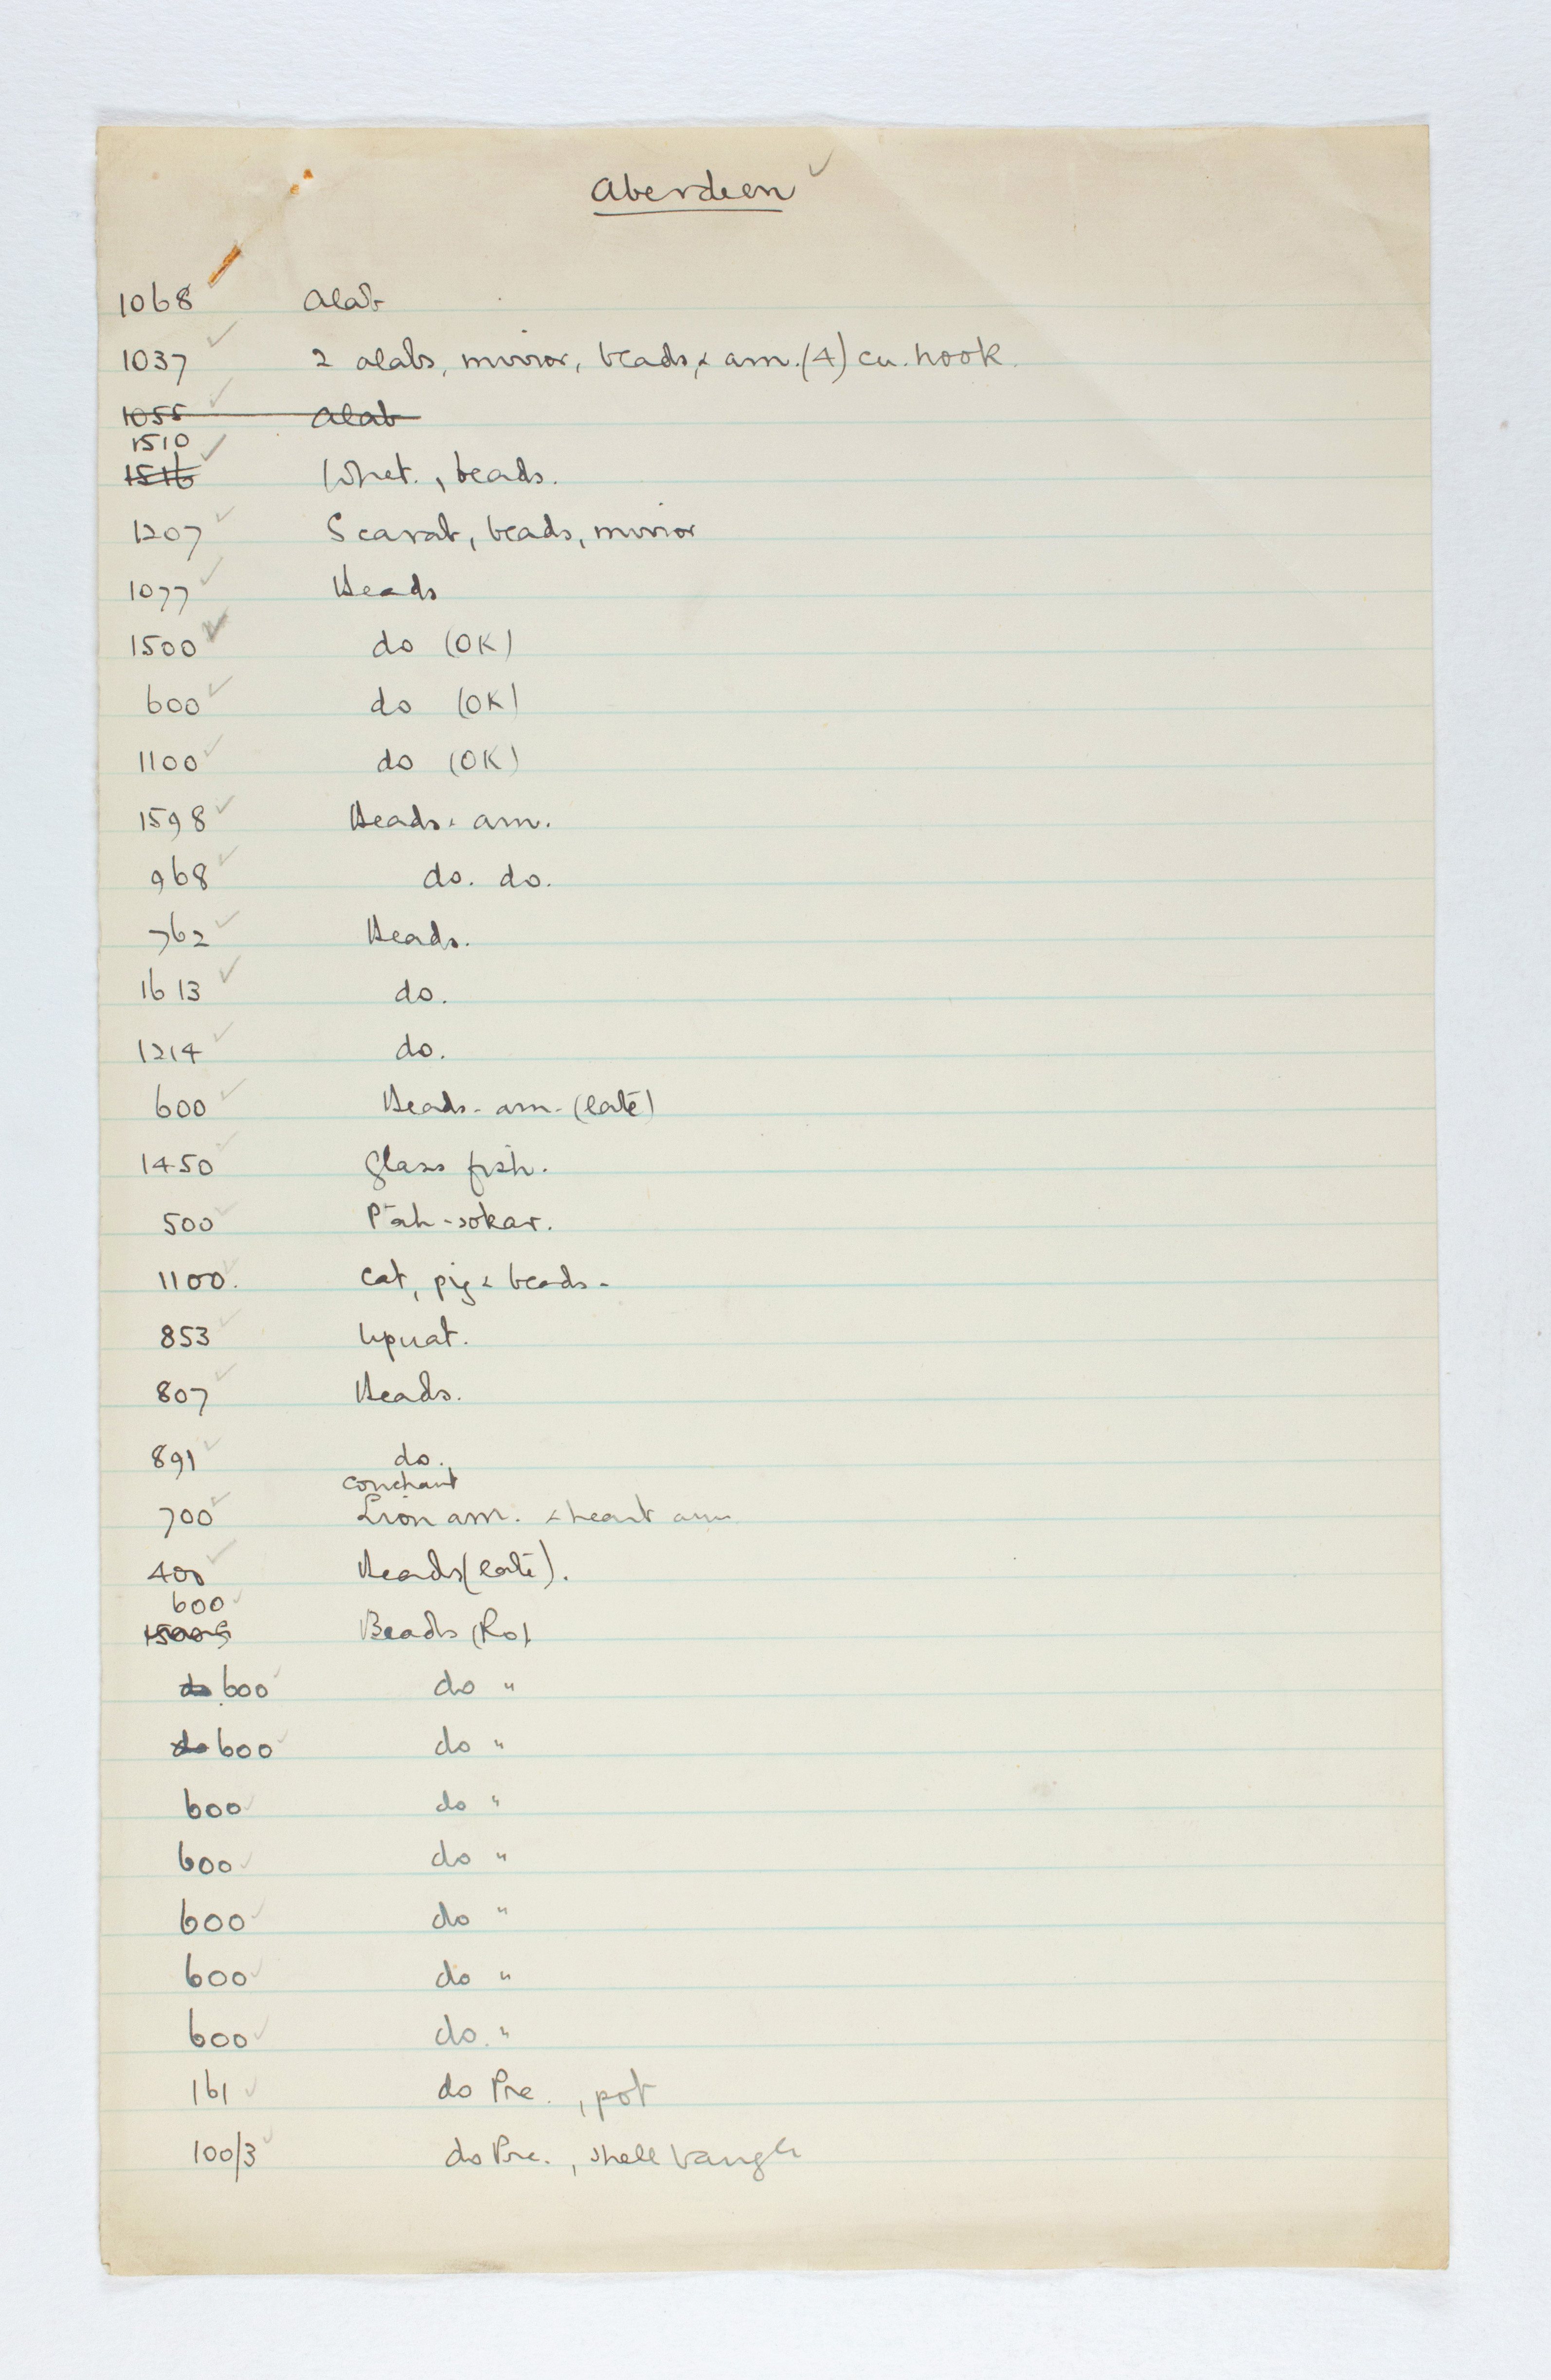 Aberdeen ✓
1068 Alab
1037 ✓ 2 alabs, mirror, beads, & am. (4) cu. hook.
1055 ✓ alab
1510 ✓
1516 Whet., beads.
1207 ✓ Scarab, beads, mirror
1077 ✓ Beads
1500 ✓ do (OK)
600 ✓ do (OK)
1100 ✓ do (OK)
1598 ✓ Beads & am.
968 ✓ do. do.
762 ✓ Beads.
1613 ✓ do.
1214 ✓ do.
600 ✓ Beads - am - (late)
1450 ✓ Glass fish.
500 ✓ Ptah-sokar.
1100. ✓ Cat, pig & beads -
853 ✓ Upuat.
807 ✓ Beads.
891 ✓ do.
couchant
700 ✓ Lion am. & heart am
400 ✓ Beads (late).
600 ✓
Beads (Ro).
do 600 ✓ do "
do 600 ✓ do "
600 ✓ do "
600 ✓ do "
600 ✓ do "
600 ✓ do "
600 ✓ do. "
161 ✓ do Pre., pot
100/3 ✓ do Pre., shell bangle